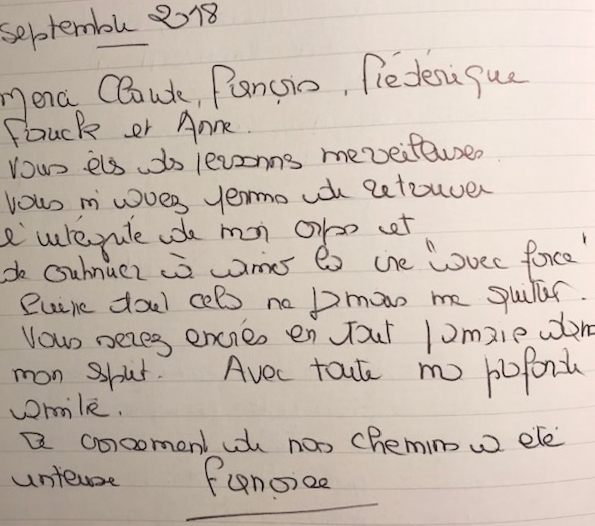 Septembre 2018
Merci Claude, François, Frédérique
et Anne.
Vous êts des personnes merveilleuses
Vous m'avez permis de retrouver
l'intégrité de mon corps et
de continuer à aimer la vie "avec force"
cela ne jamais me quitter.
Vous serez encrés en tout jamais dans
mon esprit. Avec toute ma profonde
amitié.
Le croisement de nos chemins a été
intense Françoise